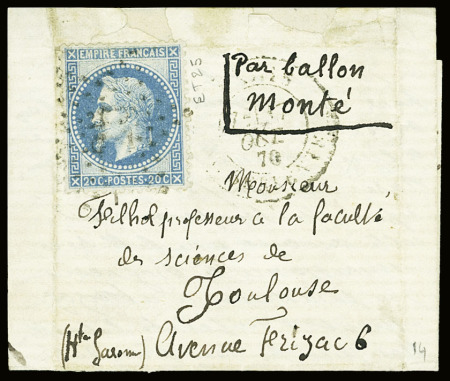 EMPIRE FRANÇAIS
20C·POSTES·20C
ET25
Par ballon
Monté
OCT
70
Monsieur
Filhol professeur a la faculté
des sciences de
Toulouse
(Hte Garonne) Avenue Frizac 6
14